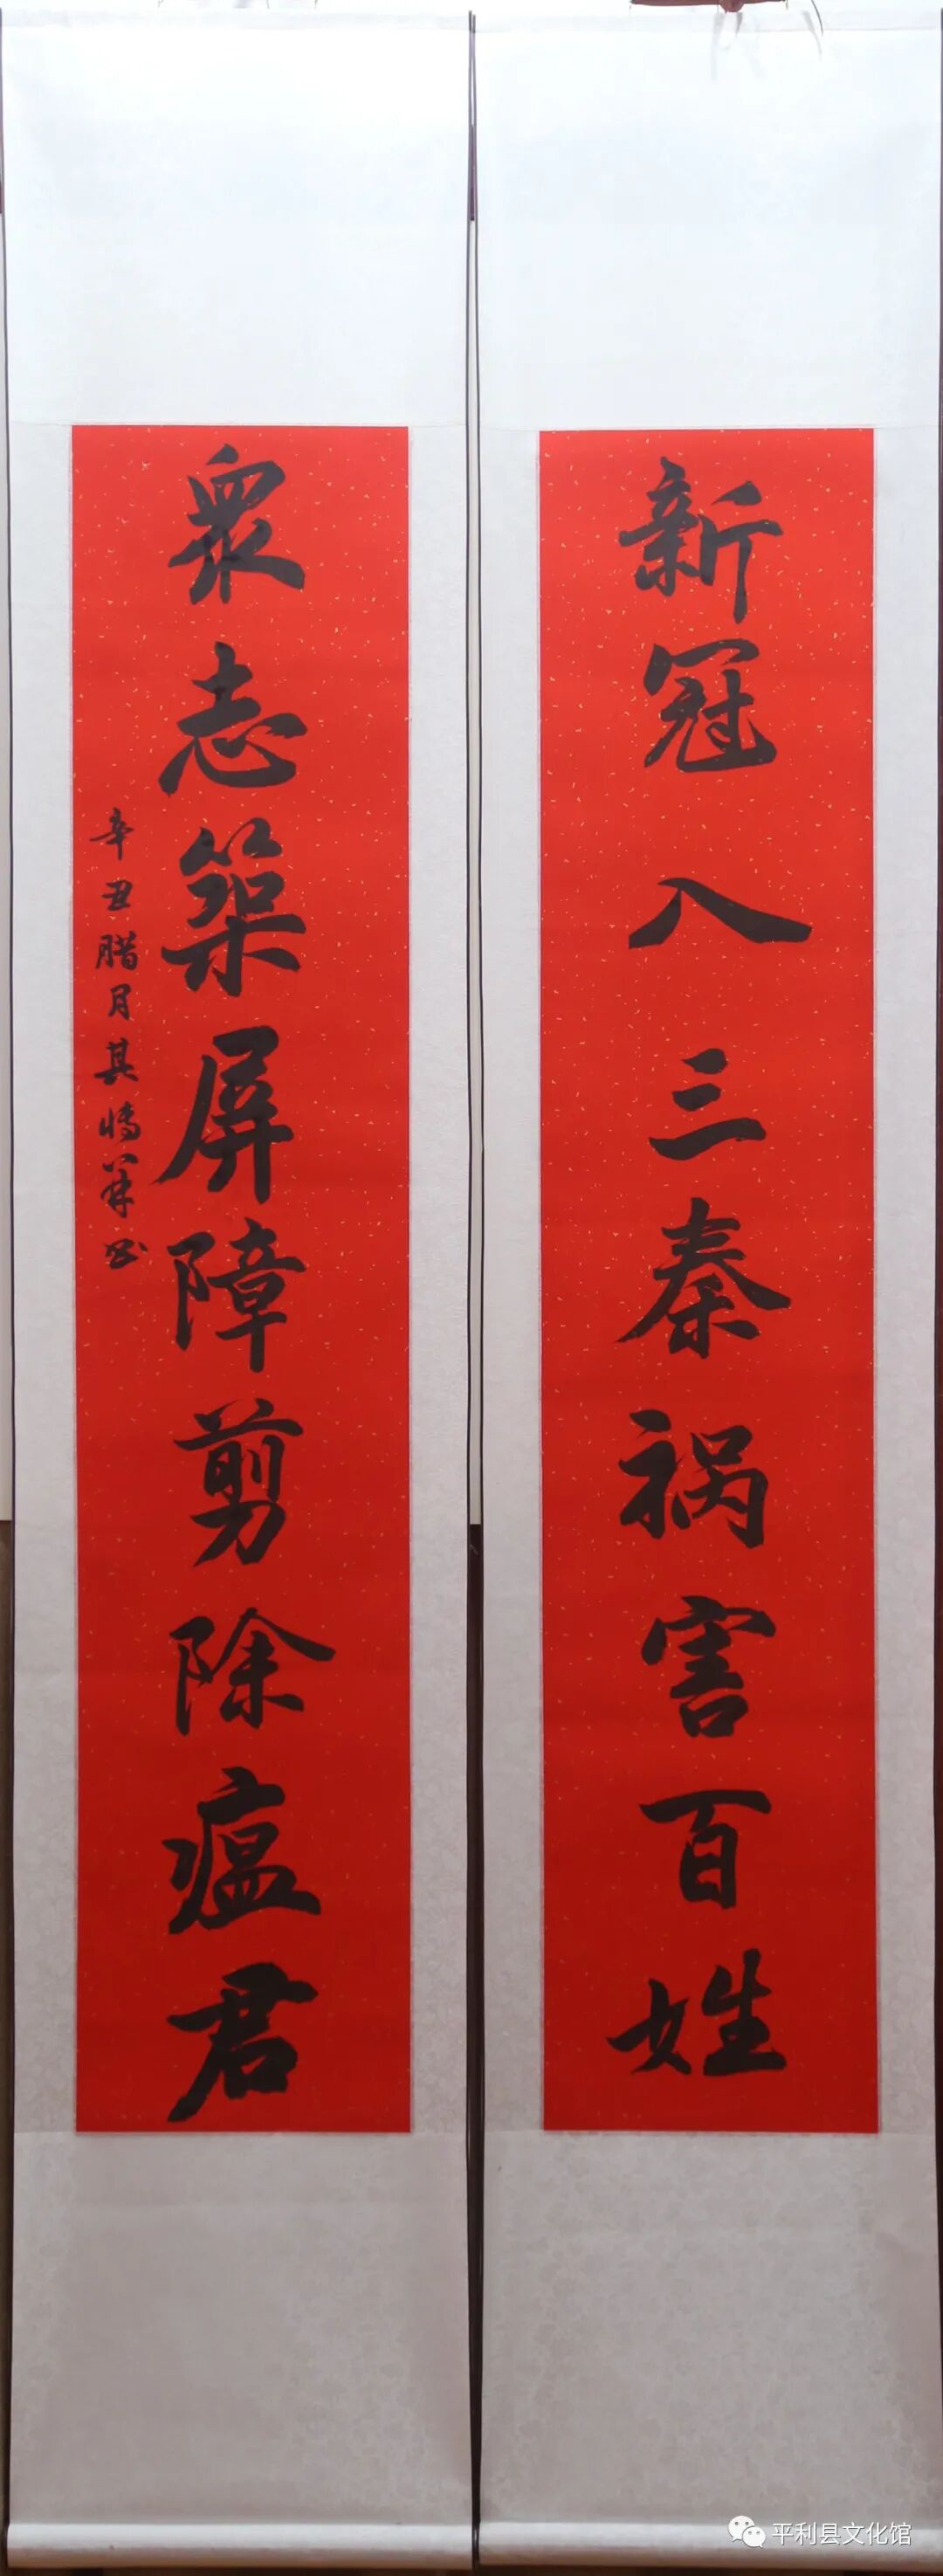 新冠入三秦祸害百姓
眾志築屏障剪除瘟君
辛丑腊月其
书
平利县文化馆